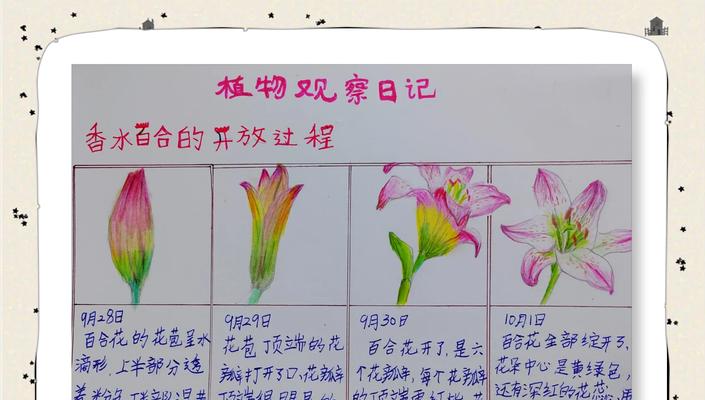 植物观察日记
香水百合的开放过程
9月28日
百合花的花苞呈水
滴形，上半部分透
9月29日
花苞顶端的花
瓣打开了口，花瓣
9月30日
百合花开了，是六
个花瓣，每个花瓣
10月1日
百合花全部绽开了，
花朵中心是黄绿色，
还有深红的花蕊